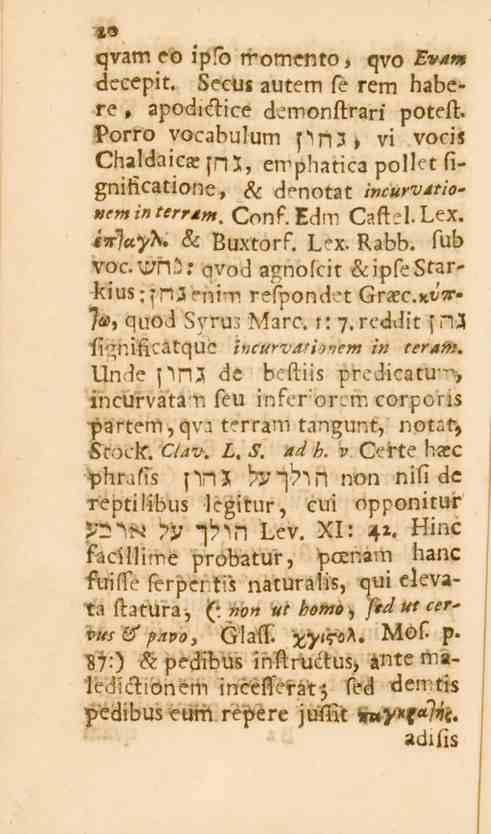 20
qvam eo ipſo momento, qvo Evam
decepit. Secus autem ſe rem habe-
re, apodictice demonſtrari poteſt.
Porro vocabulum גחון, vi vocis
Chaldaicæ גחן, emphatica pollet ſi-
gnificatione, & denotat incurvatio-
nem in terram. Conf. Edm Caſtel. Lex.
ἑπ7αγλ. & Buxtorf. Lex. Rabb. ſub
voc. נחש: qvod agnoſcit & ipſe Star-
kius: גחן enim reſpondet Græc. κύπ-
7ω, quod Syrus Marc. 1: 7. reddit גחן
ſignificatque incurvationem in teram.
Unde גחון de beſtiis predicatum,
incurvatam ſeu inferiorem corporis
partem, qva terram tangunt, notat,
Stock. Clav. L. S. ad h. v. Certe hæc
phraſis הולך על גחון non niſi de
reptilibus legitur, cui opponitur
הולך על ארבע Lev. XI: 42. Hinc
facillime probatur, pœnam hanc
fuiſſe ſerpentis naturalis, qui eleva-
ta ſtatura, (: non ut homo, ſed ut cer-
vus & pavo, Glaſſ. χγιςολ. Moſ. p.
87:) & pedibus inſtructus, ante ma-
ledictionem inceſſerat; ſed demtis
pedibus eum repere juſſit
adiſis